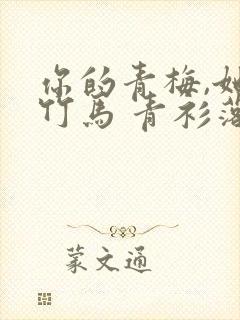 你的青梅,她
竹馬 青衫落
蒙文通